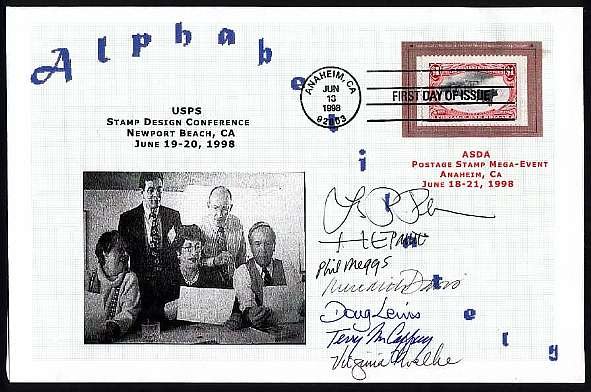 Alphabetilately
USPS
STAMP DESIGN CONFERENCE
NEWPORT BEACH, CA
JUNE 19-20, 1998
ANAHEIM, CA
JUN
13
1998
92803
FIRST DAY OF ISSUE
ASDA
POSTAGE STAMP MEGA-EVENT
ANAHEIM, CA
JUNE 18-21, 1998
Phil Meggs
Meredith Davis
Doug Lewis
Terry McCaffrey
Virginia Noelke